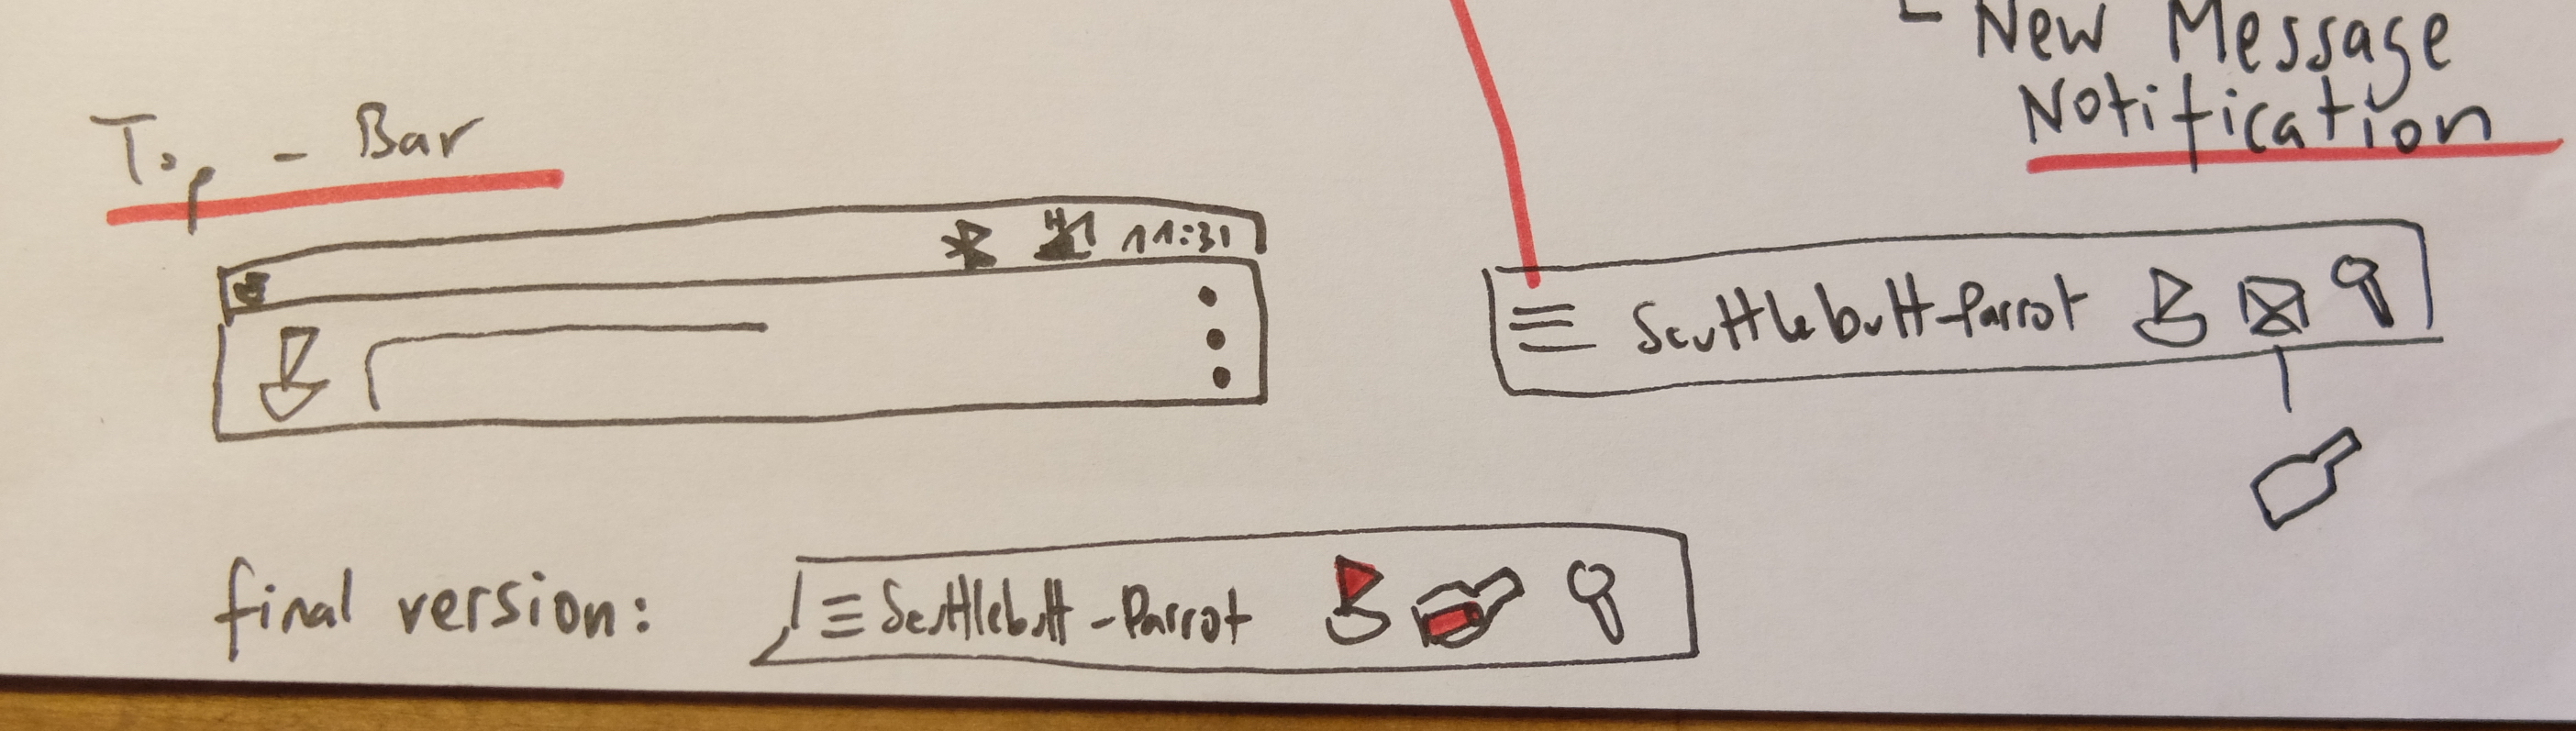 New Message
Notification
Top - Bar
11:31
Scuttlebutt-Parrot
final version:
Scuttlebutt-Parrot